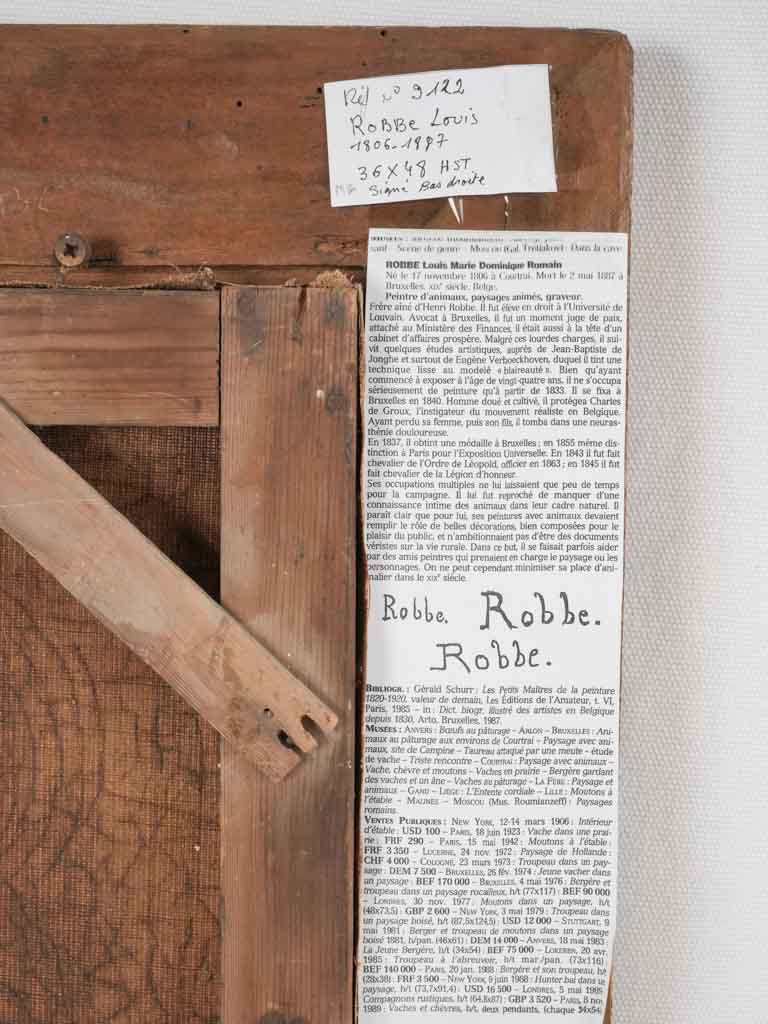 Réf n° 9122
ROBBE Louis
1806-1887
36 X 48 HST
Signé Bas droite
sant - Scène de genre - Moscou (Gal. Tretiakov) : Dans la cave
ROBBE Louis Marie Dominique Romain
Né le 17 novembre 1806 à Courtrai. Mort le 2 mai 1887 à
Bruxelles. XIXe siècle. Belge.
Peintre d'animaux, paysages animés, graveur.
Frère aîné d'Henri Robbe. Il fut élève en droit à l'Université de
Louvain. Avocat à Bruxelles, il fut un moment juge de paix,
attaché au Ministère des Finances, il était aussi à la tête d'un
cabinet d'affaires prospère. Malgré ces lourdes charges, il sui-
vit quelques études artistiques, auprès de Jean-Baptiste de
Jonghe et surtout de Eugène Verboeckhoven, duquel il tint une
technique lisse au modelé « blaireauté ». Bien qu'ayant
commencé à exposer à l'âge de vingt-quatre ans, il ne s'occupa
sérieusement de peinture qu'à partir de 1833. Il se fixa à
Bruxelles en 1840. Homme doué et cultivé, il protégea Charles
de Groux, l'instigateur du mouvement réaliste en Belgique.
Ayant perdu sa femme, puis son fils, il tomba dans une neuras-
thénie douloureuse.
En 1837, il obtint une médaille à Bruxelles ; en 1855 même dis-
tinction à Paris pour l'Exposition Universelle. En 1843 il fut fait
chevalier de l'Ordre de Léopold, officier en 1863 ; en 1845 il fut
fait chevalier de la Légion d'honneur.
Ses occupations multiples ne lui laissaient que peu de temps
pour la campagne. Il lui fut reproché de manquer d'une
connaissance intime des animaux dans leur cadre naturel. Il
paraît clair que pour lui, ses peintures avec animaux devaient
remplir le rôle de belles décorations, bien composées pour le
plaisir du public, et n'ambitionnaient pas d'être des documents
véristes sur la vie rurale. Dans ce but, il se faisait parfois aider
par des amis peintres qui prenaient en charge le paysage ou les
personnages. On ne peut cependant minimiser sa place d'ani-
malier dans le XIXe siècle.
Robbe. Robbe.
Robbe.
BIBLIOGR. : Gérald Schurr : Les Petits Maîtres de la peinture
1820-1920, valeur de demain, Les Éditions de l'Amateur, t. VI,
Paris, 1985 – in : Dict. biogr. illustré des artistes en Belgique
depuis 1830, Arto, Bruxelles, 1987.
MUSÉES : ANVERS : Bœufs au pâturage – ARLON – BRUXELLES : Ani-
maux au pâturage aux environs de Courtrai – Paysage avec ani-
maux, site de Campine – Taureau attaqué par une meute – étude
de vache – Triste rencontre – COURTRAI : Paysage avec animaux –
Vache, chèvre et moutons – Vaches en prairie – Bergère gardant
des vaches et un âne – Vaches au pâturage – LA FÈRE : Paysage et
animaux – GAND – LIÈGE : L'Entente cordiale – LILLE : Moutons à
l'étable – MALINES – MOSCOU (Mus. Roumianzeff) : Paysages
romains.
VENTES PUBLIQUES : NEW YORK, 12-14 mars 1906 : Intérieur
d'étable : USD 100 – PARIS, 18 juin 1923 : Vache dans une prai-
rie : FRF 290 – PARIS, 15 mai 1942 : Moutons à l'étable :
FRF 3 350 – LUCERNE, 24 nov. 1972 : Paysage de Hollande :
CHF 4 000 – COLOGNE, 23 mars 1973 : Troupeau dans un pay-
sage : DEM 7 500 – BRUXELLES, 26 fév. 1974 : Jeune vacher dans
un paysage : BEF 170 000 – BRUXELLES, 4 mai 1976 : Bergère et
troupeau dans un paysage rocailleux, h/t (77x117) : BEF 90 000
– LONDRES, 30 nov. 1977 : Moutons dans un paysage, h/t
(48x73,5) : GBP 2 600 – NEW YORK, 3 mai 1979 : Troupeau dans
un paysage boisé, h/t (87,5x124,5) : USD 12 000 – STUTTGART, 9
mai 1981 : Berger et troupeau de moutons dans un paysage
boisé 1881, h/pan. (46x61) : DEM 14 000 – ANVERS, 18 mai 1983 :
La Jeune Bergère, h/t (34x54) : BEF 75 000 – LOKEREN, 20 avr.
1985 : Troupeau à l'abreuvoir, h/t mar./pan. (73x116) :
BEF 140 000 – PARIS, 20 jan. 1988 : Bergère et son troupeau, h/t
(28x38) : FRF 3 500 – NEW YORK, 9 juin 1988 : Hunter bai dans un
paysage, h/t (73,7x91,4) : USD 16 500 – LONDRES, 5 mai 1989 :
Compagnons rustiques, h/t (64,8x87) : GBP 3 520 – PARIS, 8 nov.
1989 : Vaches et chèvres, h/t, deux pendants, (chaque 34x54)